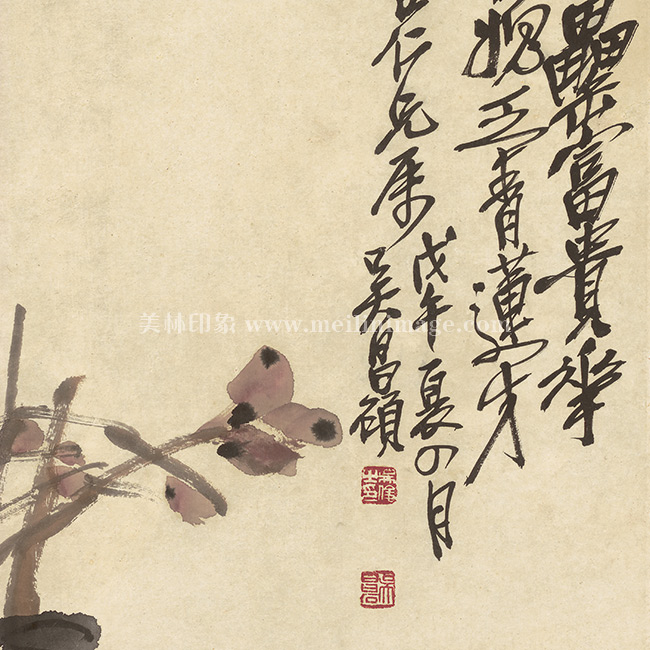 富貴華
媿乏青蓮才
仁兄属
戊午夏四月
吳昌碩
美林印象 www.meilinimage.com